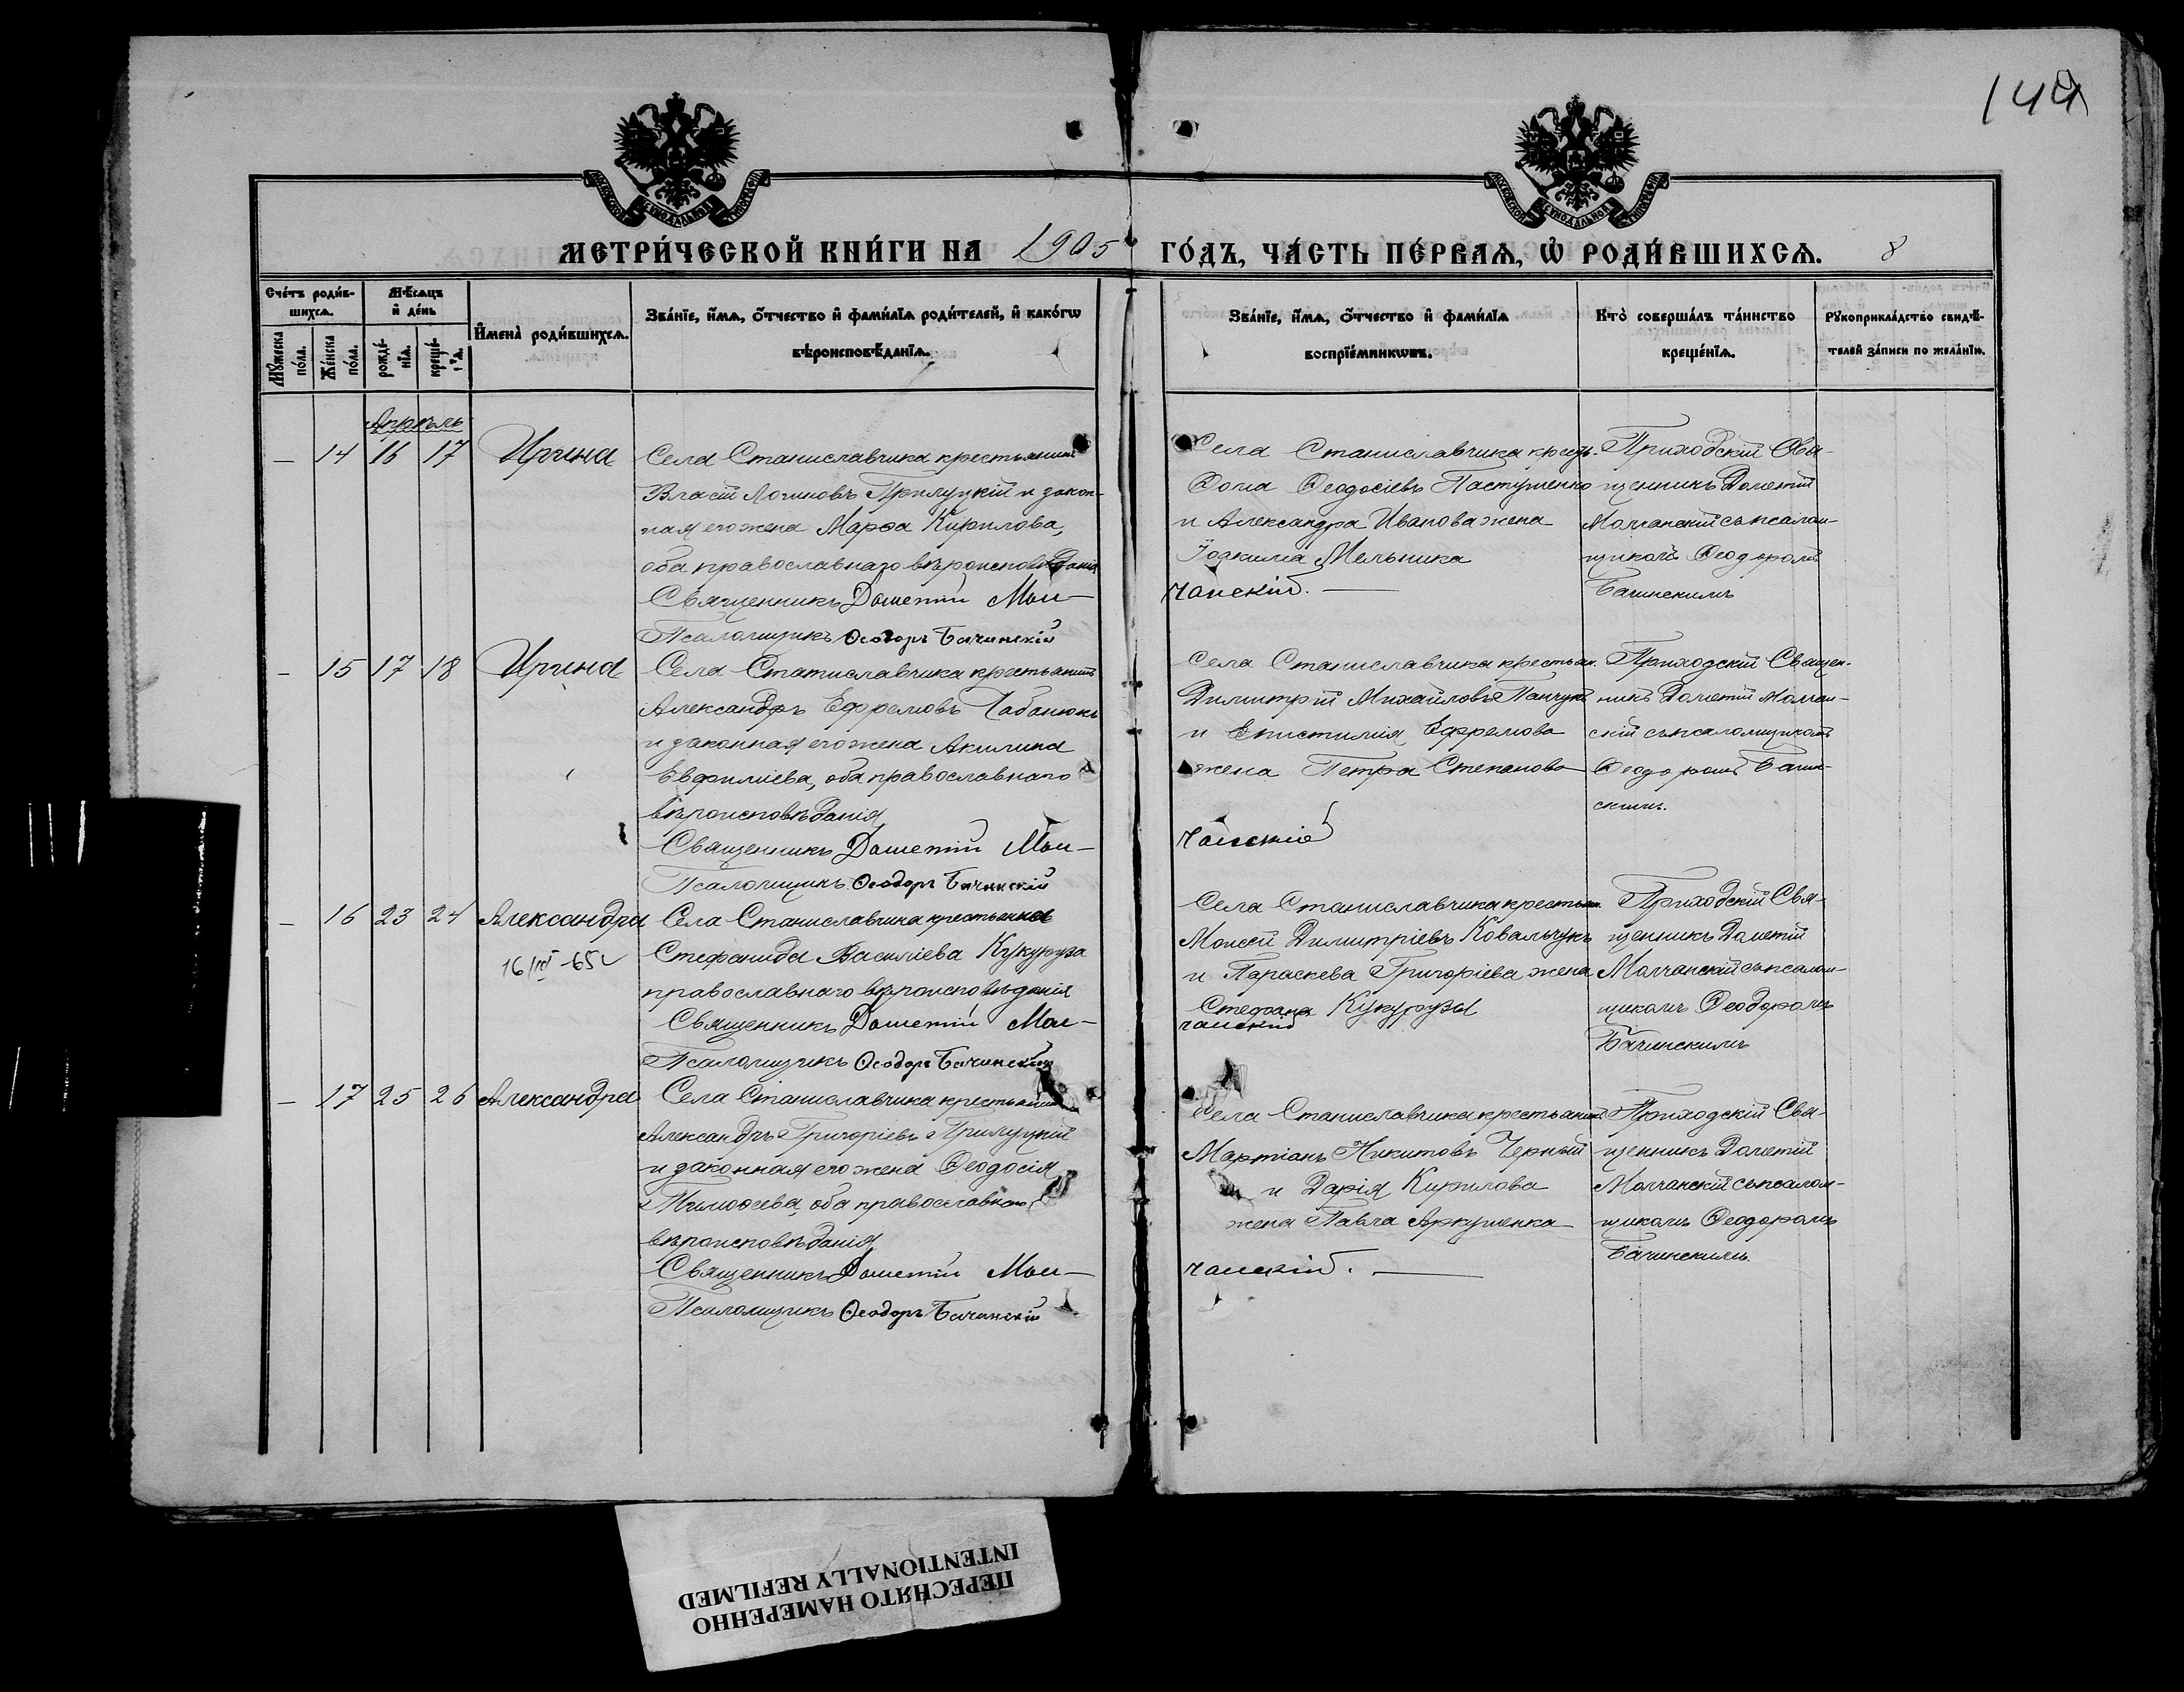 144
МЕТРИ́ЧЕСКОЙ КНИ́ГИ НА 1905 ГО́ДЪ, ЧА́СТЬ ПЕ́РВАѦ, Ѡ҆ РОДИ́ВШИХСѦ. 8
Сче́тъ роди́в-
шихсѧ.
Мꙋ́жеска по́ла.
Же́нска по́ла.
Мѣ́сѧцъ
и҆ де́нь
рожде́-
нїѧ.
креще́-
нїѧ.
И҆мена̀ роди́вшихсѧ.
Зва́нїе, и҆́мѧ, ѻ҆́тчество и҆ фами́лїѧ роди́телей, и҆ како́гѡ
вѣроисповѣ́данїѧ.
Зва́нїе, и҆́мѧ, ѻ҆́тчество и҆ фами́лїѧ
воспрїе́мникѡвъ.
Кто̀ соверша́лъ та́инство
креще́нїѧ.
Рꙋкоприкла́дство свидѣ́-
телей за́писи по жела́нїю.
Апрѣль
— 14 16 17 Ирина
Села Станиславчика крестьянинъ
Власій Логиновъ Прилуцкій и закон-
ная его жена Марѳа Кирилова,
оба православнаго вѣроисповѣданія
Священникъ Дометій Мол-
Псаломщикъ Ѳеодоръ Бачинскій
Села Станиславчика крест.
Ѳома Ѳеодосіевъ Пастушенко
и Александра Иванова жена
Іоакима Мельника
чанскій.
Приходскій Свя-
щенникъ Дометій
Молчанскій съ псалом-
щикомъ Ѳеодоромъ
Бачинскимъ
— 15 17 18 Ирина
Села Станиславчика крестьянинъ
Александръ Ефремовъ Табанюкъ
и законная его жена Акилина
Евфиміева, оба православнаго
вѣроисповѣданія
Священникъ Дометій Мол-
Псаломщикъ Ѳеодоръ Бачинскій
Села Станиславчика крестьян.
Димитрій Михайловъ Панчукъ
и Епистимія Ефремова
жена Петра Степанова
чанскій
Приходскій Священ-
никъ Дометій Молчан-
скій съ псаломщикомъ
Ѳеодоромъ Бачин-
скимъ.
— 16 23 24 Александра
Села Станиславчика крестьянка
Стефанида Василіева Кукуруза
православнаго вѣроисповѣданія
Священникъ Дометій Мол-
Псаломщикъ Ѳеодоръ Бачинскій
Села Станиславчика крестьян.
Моисей Димитріевъ Ковальчукъ
и Параскева Григоріева жена
Стефана Кукурузы
чанскій
Приходскій Свя-
щенникъ Дометій
Молчанскій съ псалом-
щикомъ Ѳеодоромъ
Бачинскимъ
— 17 25 26 Александра
Села Станиславчика крестьянинъ
Александръ Григоріевъ Прилуцкій
и законная его жена Ѳеодосія
Тимоѳеева, оба православнаго
вѣроисповѣданія
Священникъ Дометій Мол-
Псаломщикъ Ѳеодоръ Бачинскій
Села Станиславчика крестьянинъ
Мартіанъ Никитовъ Черный
и Дарія Кирилова
жена Павла Аркушенка
чанскій.
Приходскій Свя-
щенникъ Дометій
Молчанскій съ псалом-
щикомъ Ѳеодоромъ
Бачинскимъ.
ПЕРЕСНЯТО НАМЕРЕННО
INTENTIONALLY REFILMED